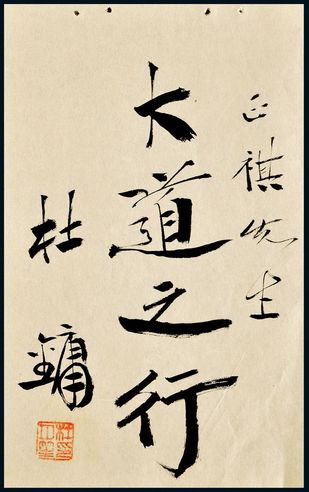 正祺先生
大道之行
杜鏞